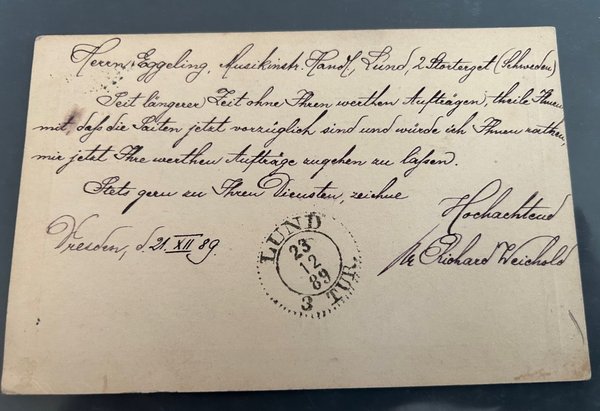 Herrn Eggeling, Musikinstr. Handl, Lund, 2 Stortorget (Schweden)
Seit längerer Zeit ohne Ihren werthen Aufträgen, theile Ihnen
mit, daß die Saiten jetzt vorzüglich sind und würde ich Ihnen rathen,
mir jetzt Ihre werthen Aufträge zugehen zu laßen.
Stets gern zu Ihren Diensten, zeichne
Hochachtend
Richard Weichold
Dresden, d. 21. XII 89.
LUND
23
12
89
3 TUR.